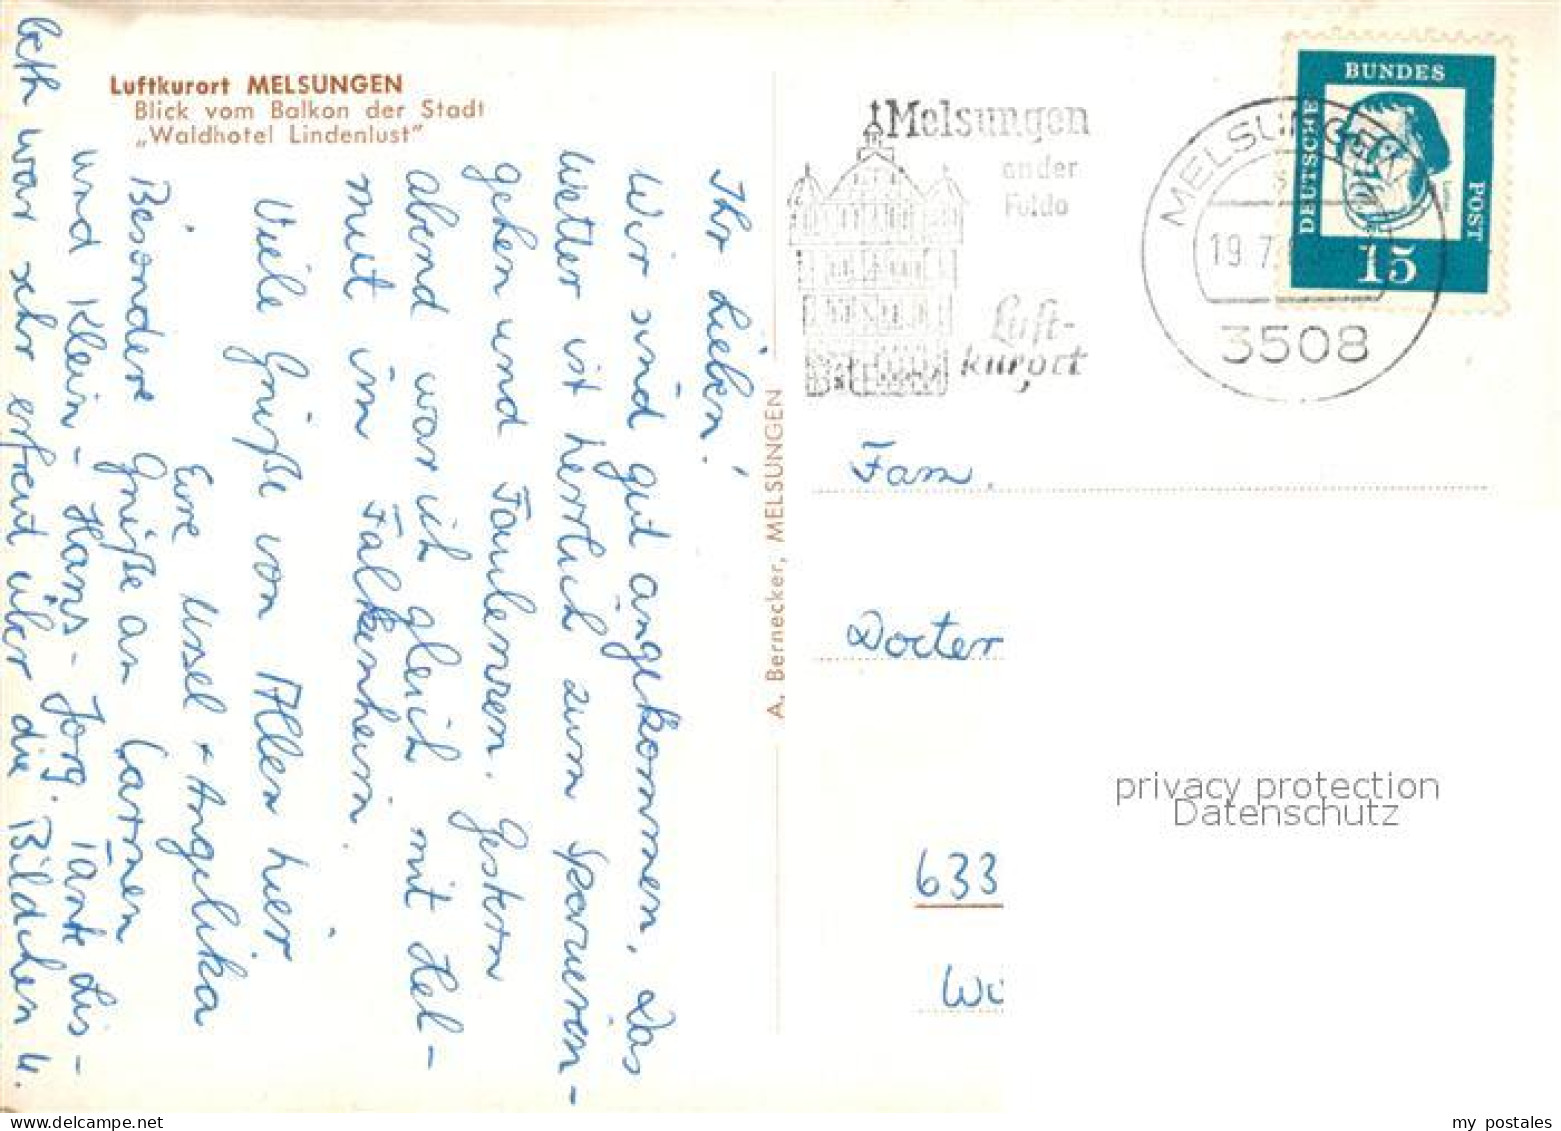 Luftkurort MELSUNGEN
Blick vom Balkon der Stadt
„Waldhotel Lindenlust"
Ihr Lieben!
Wir sind gut angekommen. Das
Wetter ist herrlich zum Spazieren-
gehen und Faulenzen. Gestern
abend war ich gleich mit Hel-
mut in Falkenheim.
Viele Grüße von Allen hier
Eure Ursel + Angelika
Besondere Grüße an Carmen
und Klein-Hans-Jörg. Tante Lis-
beth war sehr erfreut über die Bildchen u.
A. Bernecker, MELSUNGEN
Melsungen
an der
Fulda
Luft-
kurort
MELSUNGEN
19.7.
3508
DEUTSCHE
BUNDES
POST
15
Fam.
Docter
633
Wi
privacy protection
Datenschutz
my postales